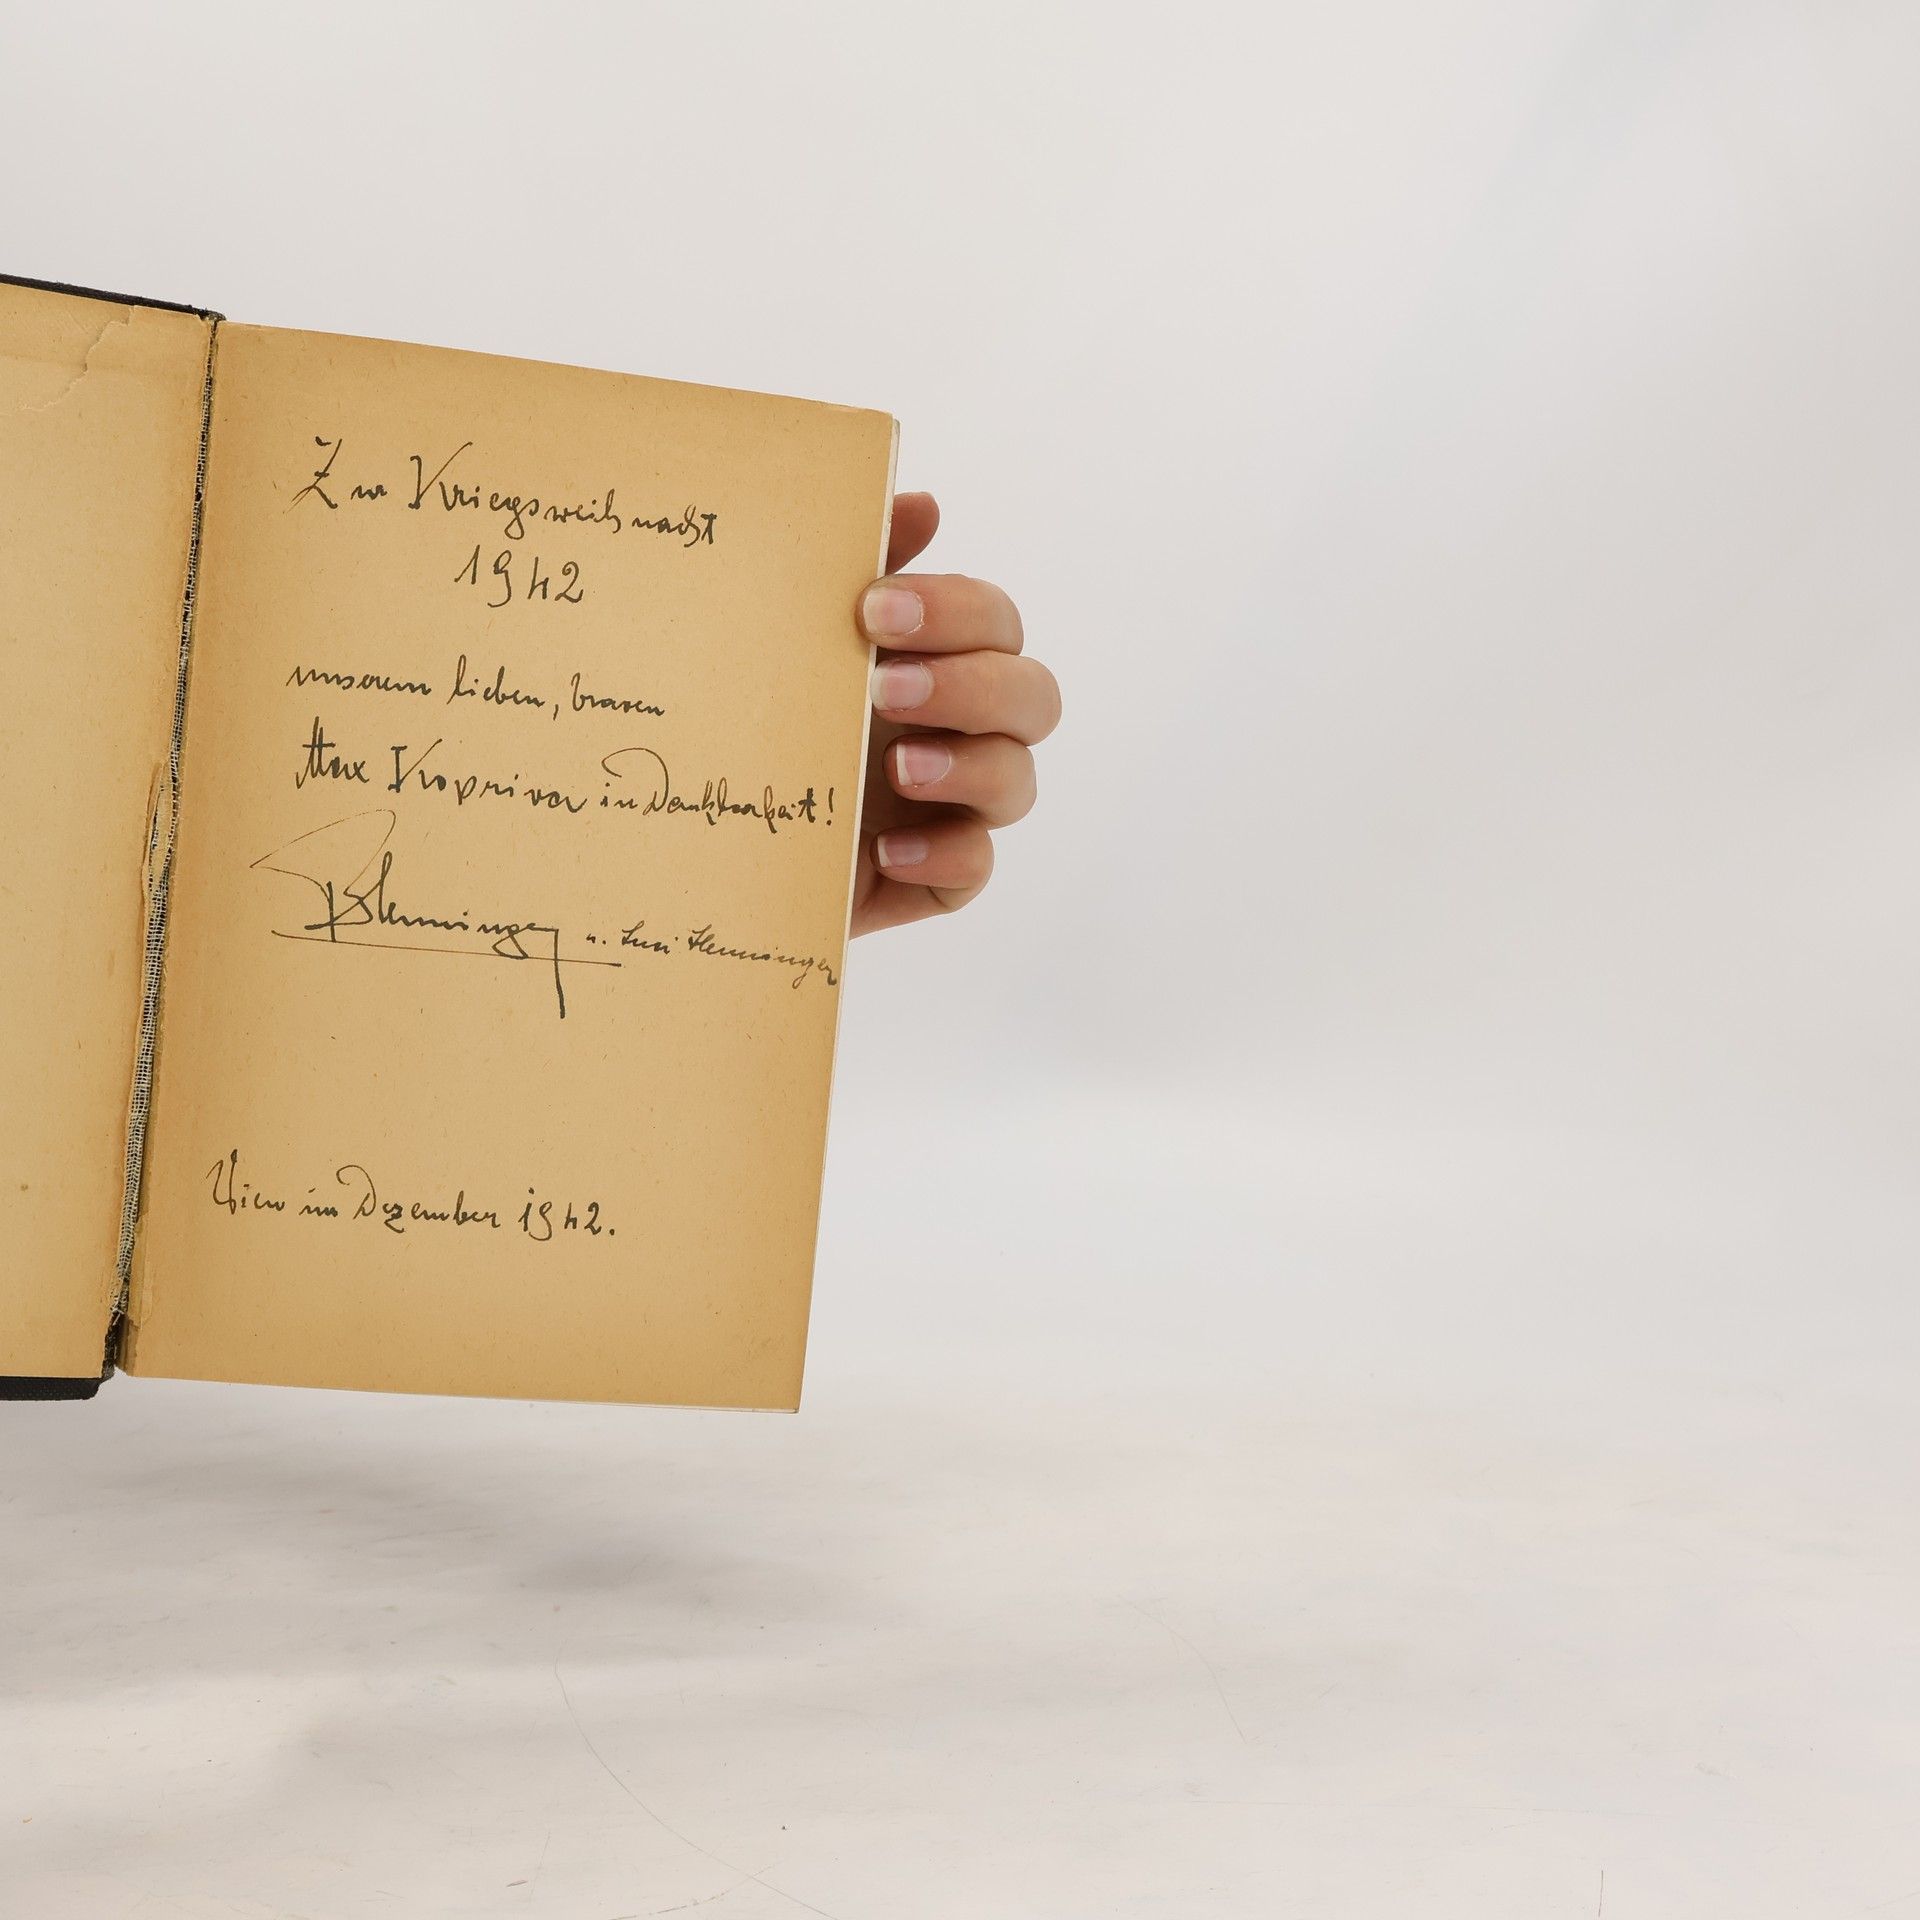 Zur Kriegsweihnacht
1942
unserem lieben, braven
Max Kopriva in Dankbarkeit!
Henninger u. Henninger
Wien im Dezember 1942.